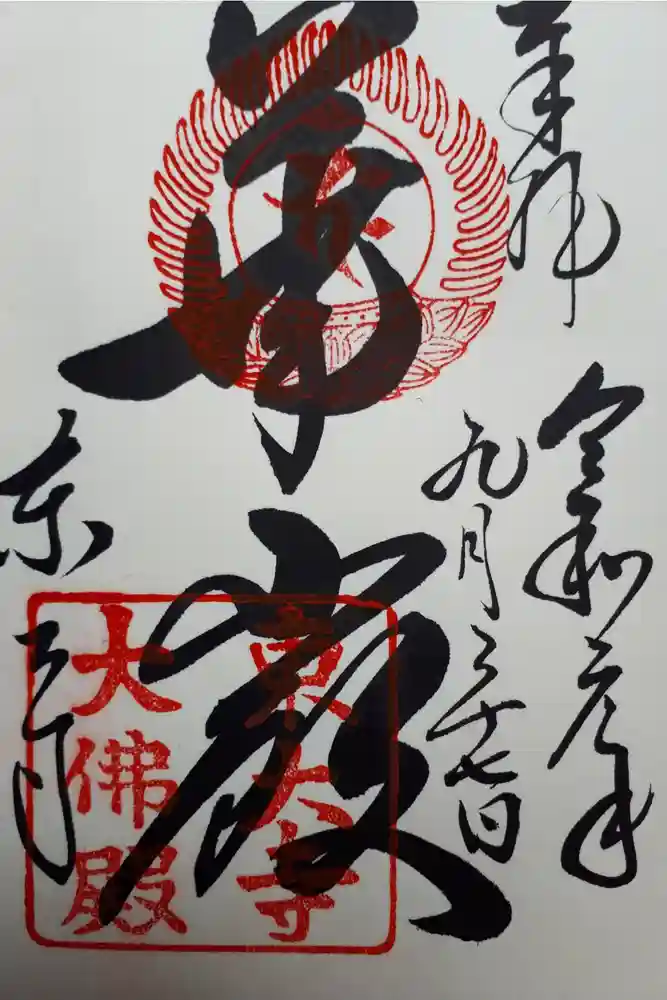 奉拝
令和元年
九月二十七日
華嚴
東大寺
東大寺
大佛殿